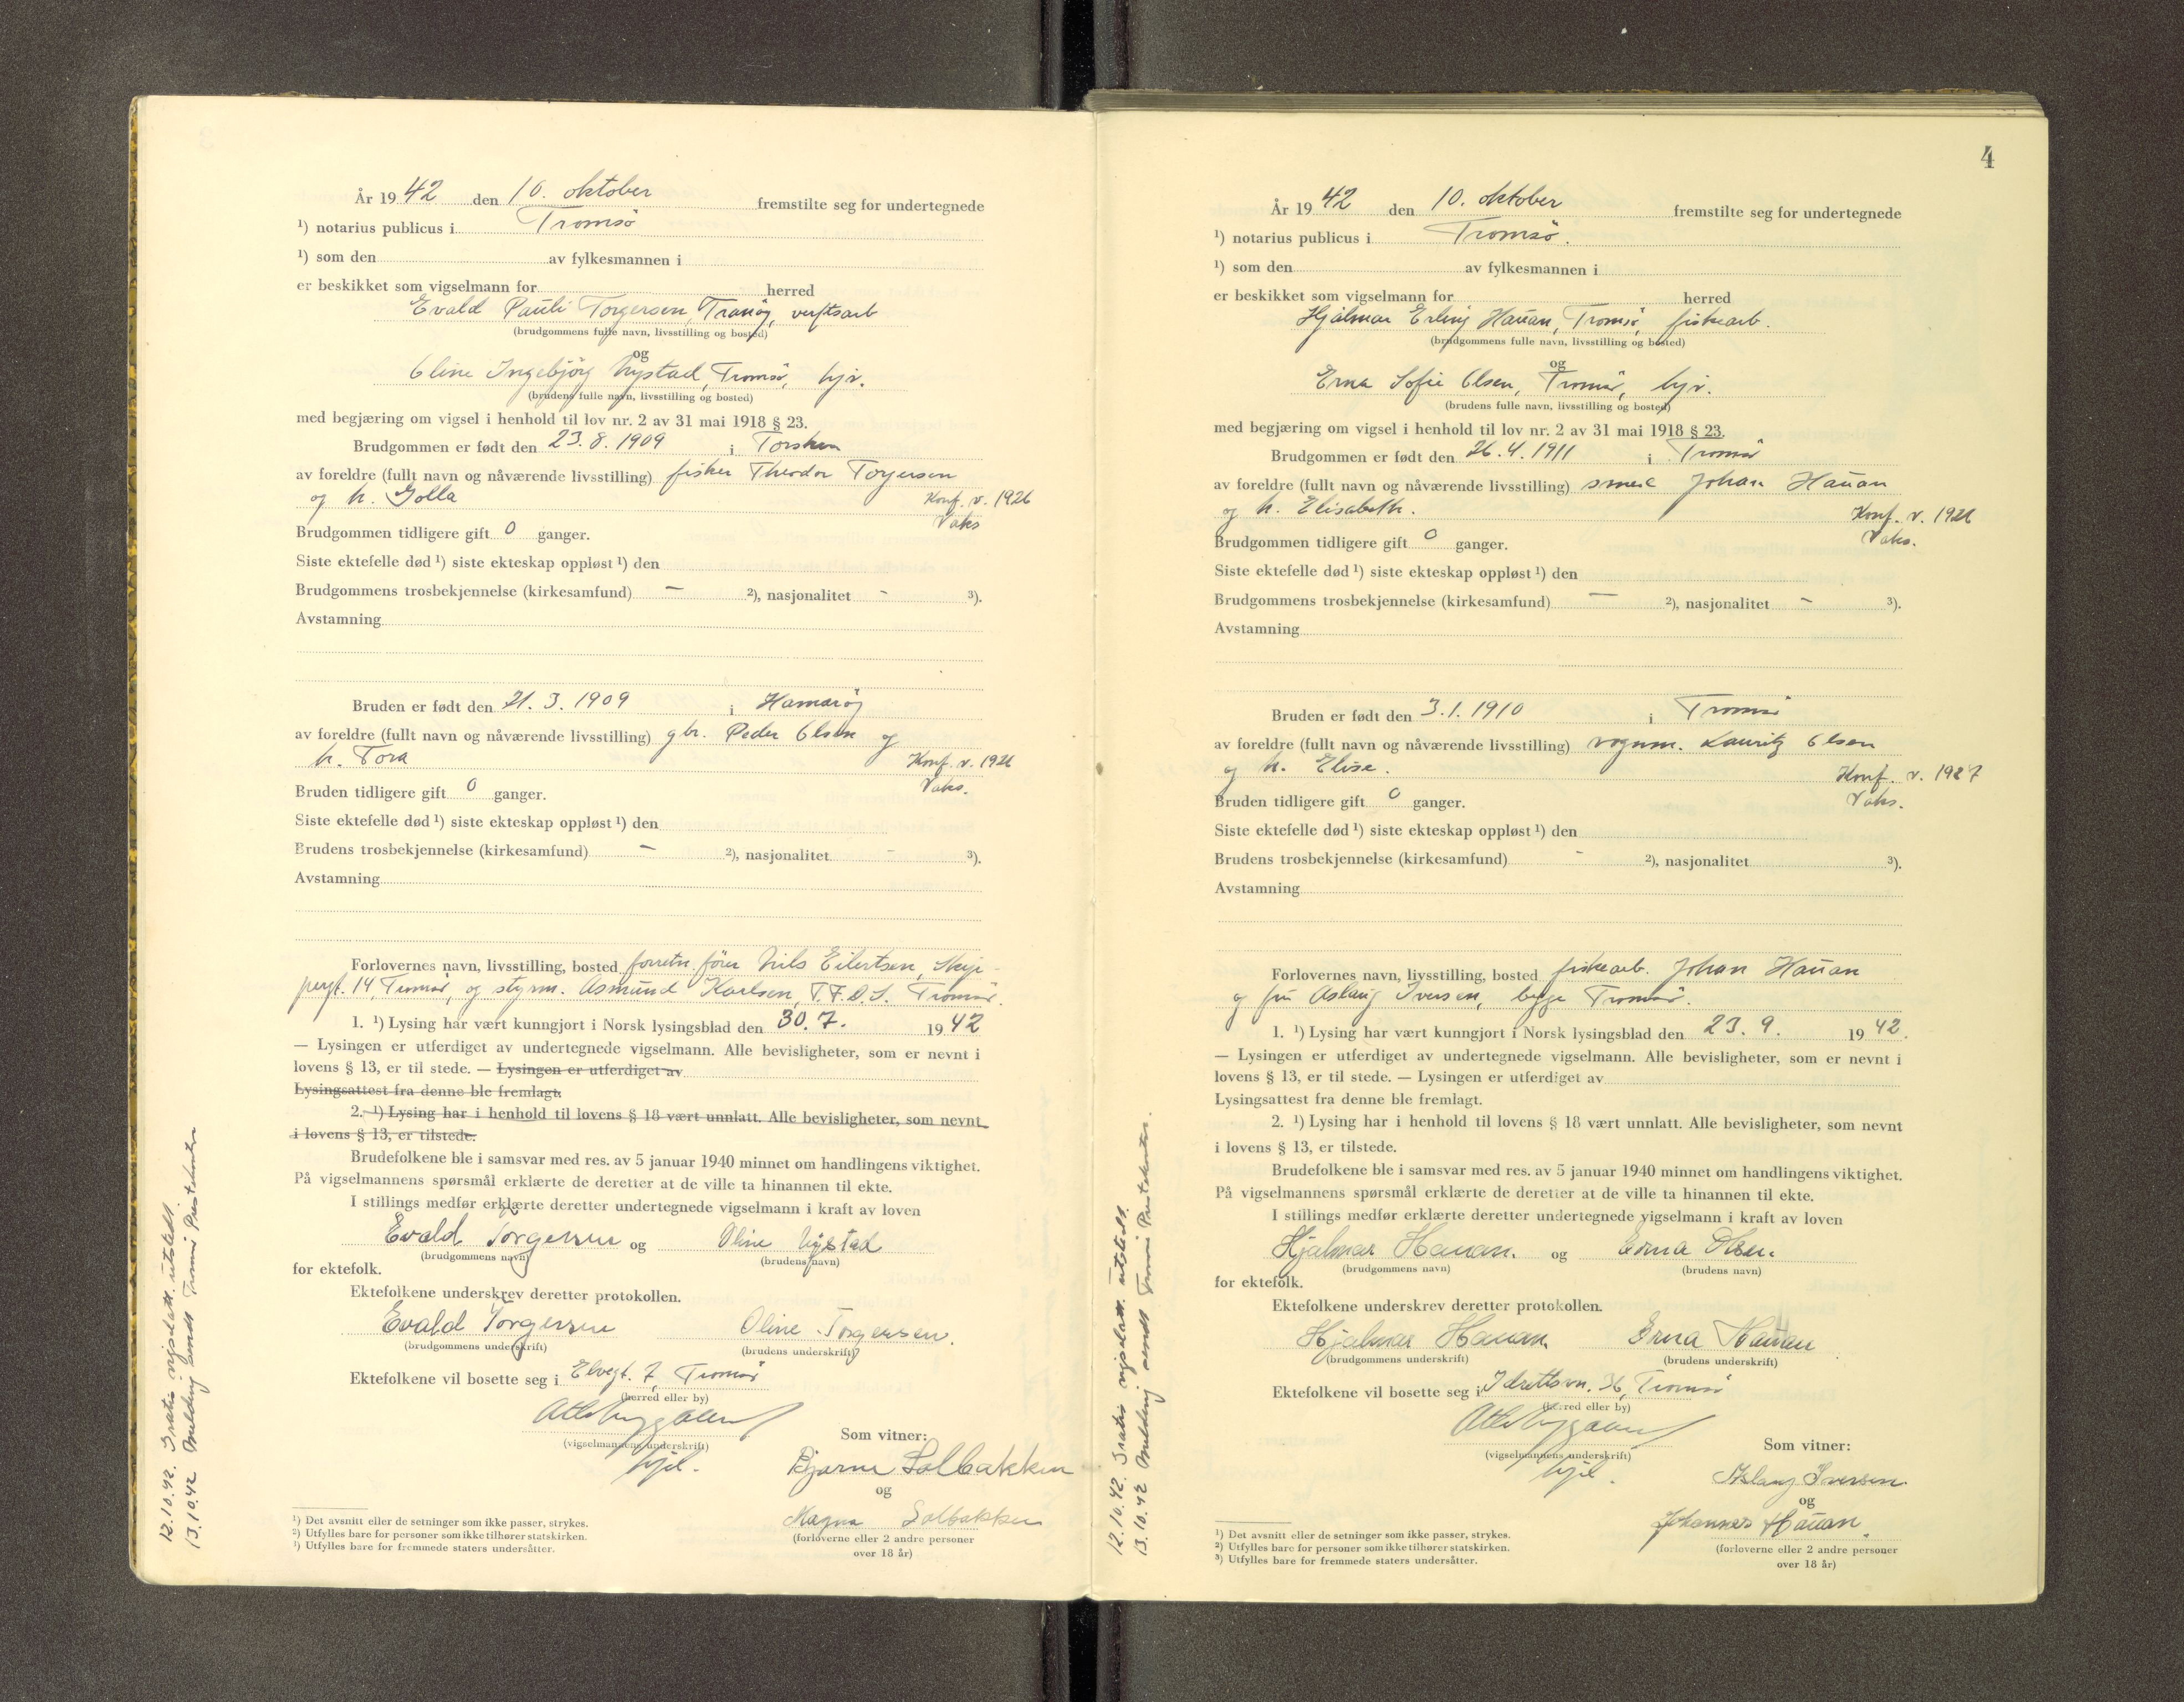 År 1942 den 10. oktober fremstilte seg for undertegnede
¹) notarius publicus i Tromsö
¹) som den av fylkesmannen i
er beskikket som vigselmann for herred
Evald Pauli Torgersen, Tranöy, verftsarb
(brudgommens fulle navn, livsstilling og bosted)
og
Oline Ingebjörg Nystad, Tromsö, hjv.
(brudens fulle navn, livsstilling og bosted)
med begjæring om vigsel i henhold til lov nr. 2 av 31 mai 1918 § 23.
Brudgommen er født den 23.8.1909 i Torsken
av foreldre (fullt navn og nåværende livsstilling) fisker Theodor Torgersen
og h. Golla Konf. v. 1926
Vaks
Brudgommen tidligere gift 0 ganger.
Siste ektefelle død ¹) siste ekteskap oppløst ¹) den
Brudgommens trosbekjennelse (kirkesamfund) — ²), nasjonalitet - ³).
Avstamning
Bruden er født den 21.3.1909 i Hamaröy
av foreldre (fullt navn og nåværende livsstilling) gbr. Peder Olsen og
h. Tora Konf. v. 1926
Vaks.
Bruden tidligere gift 0 ganger.
Siste ektefelle død ¹) siste ekteskap oppløst ¹) den
Brudens trosbekjennelse (kirkesamfund) - ²), nasjonalitet - ³).
Avstamning
Forlovernes navn, livsstilling, bosted forretn.förer Nils Eilertsen, Skip-
pergt. 14, Tromsö, og styrm. Asmund Karlsen, T.F.D.S. Tromsö.
1. ¹) Lysing har vært kunngjort i Norsk lysingsblad den 30.7. 1942
— Lysingen er utferdiget av undertegnede vigselmann. Alle bevisligheter, som er nevnt i
lovens § 13, er til stede. — Lysingen er utferdiget av
Lysingsattest fra denne ble fremlagt.
2. ¹) Lysing har i henhold til lovens § 18 vært unnlatt. Alle bevisligheter, som nevnt
i lovens § 13, er tilstede.
Brudefolkene ble i samsvar med res. av 5 januar 1940 minnet om handlingens viktighet.
På vigselmannens spørsmål erklærte de deretter at de ville ta hinannen til ekte.
I stillings medfør erklærte deretter undertegnede vigselmann i kraft av loven
Evald Torgersen og Oline Nystad
(brudgommens navn) (brudens navn)
for ektefolk.
Ektefolkene underskrev deretter protokollen.
Evald Torgersen Oline Torgersen.
(brudgommens underskrift) (brudens underskrift)
Ektefolkene vil bosette seg i Elvegt. 7, Tromsö
(herred eller by)
(vigselmannens underskrift)
Som vitner:
Bjarne Solbakken
og
Magna Solbakken
(forloverne eller 2 andre personer
over 18 år)
¹) Det avsnitt eller de setninger som ikke passer, strykes.
²) Utfylles bare for personer som ikke tilhører statskirken.
³) Utfylles bare for fremmede staters undersåtter.
12.10.42. Gratis vigselatt. utstedt.
13.10.42 Melding sendt Tromsö Prestekontor
4
År 1942 den 10. oktober fremstilte seg for undertegnede
¹) notarius publicus i Tromsö.
¹) som den av fylkesmannen i
er beskikket som vigselmann for herred
Hjalmar Erling Hauan, Tromsö, fiskearb.
(brudgommens fulle navn, livsstilling og bosted)
og
Erna Sofie Olsen, Tromsö, hjv.
(brudens fulle navn, livsstilling og bosted)
med begjæring om vigsel i henhold til lov nr. 2 av 31 mai 1918 § 23.
Brudgommen er født den 26.4.1911 i Tromsö
av foreldre (fullt navn og nåværende livsstilling) smed Johan Hauan
og h. Elisabeth. Konf. v. 1926
Vaks.
Brudgommen tidligere gift 0 ganger.
Siste ektefelle død ¹) siste ekteskap oppløst ¹) den
Brudgommens trosbekjennelse (kirkesamfund) — ²), nasjonalitet - ³).
Avstamning
Bruden er født den 3.1.1910 i Tromsö
av foreldre (fullt navn og nåværende livsstilling) vognm. Lauritz Olsen
og h. Elise. Konf. v. 1927
Vaks.
Bruden tidligere gift 0 ganger.
Siste ektefelle død ¹) siste ekteskap oppløst ¹) den
Brudens trosbekjennelse (kirkesamfund) - ²), nasjonalitet ³).
Avstamning
Forlovernes navn, livsstilling, bosted fiskearb. Johan Hauan
og fru Aslaug Iversen, begge Tromsö.
1. ¹) Lysing har vært kunngjort i Norsk lysingsblad den 23.9. 1942.
— Lysingen er utferdiget av undertegnede vigselmann. Alle bevisligheter, som er nevnt i
lovens § 13, er til stede. — Lysingen er utferdiget av
Lysingsattest fra denne ble fremlagt.
2. ¹) Lysing har i henhold til lovens § 18 vært unnlatt. Alle bevisligheter, som nevnt
i lovens § 13, er tilstede.
Brudefolkene ble i samsvar med res. av 5 januar 1940 minnet om handlingens viktighet.
På vigselmannens spørsmål erklærte de deretter at de ville ta hinannen til ekte.
I stillings medfør erklærte deretter undertegnede vigselmann i kraft av loven
Hjalmar Hauan. og Erna Olsen.
(brudgommens navn) (brudens navn)
for ektefolk.
Ektefolkene underskrev deretter protokollen.
Hjalmar Hauan. Erna Hauan
(brudgommens underskrift) (brudens underskrift)
Ektefolkene vil bosette seg i Idrettsvn. 36, Tromsö
(herred eller by)
(vigselmannens underskrift)
Som vitner:
Aslaug Iversen
og
Johannes Hauan.
(forloverne eller 2 andre personer
over 18 år)
¹) Det avsnitt eller de setninger som ikke passer, strykes.
²) Utfylles bare for personer som ikke tilhører statskirken.
³) Utfylles bare for fremmede staters undersåtter.
12.10.42. Gratis vigselatt. utstedt.
13.10.42 Melding sendt Tromsö Prestekontor.